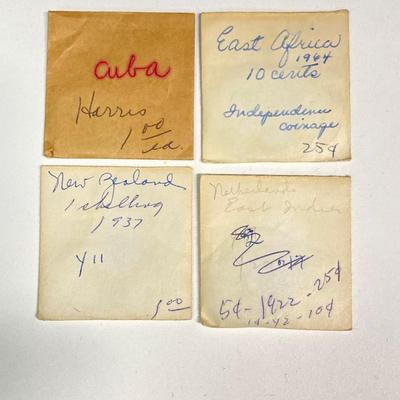 Cuba
Harris
1.00
ea.
East Africa
1964
10 cents
Independence
coinage
25¢
New Zealand
1 shilling
1937
Y11
1.00
Netherlands
East Indies
5¢-1922-25¢
42-10¢